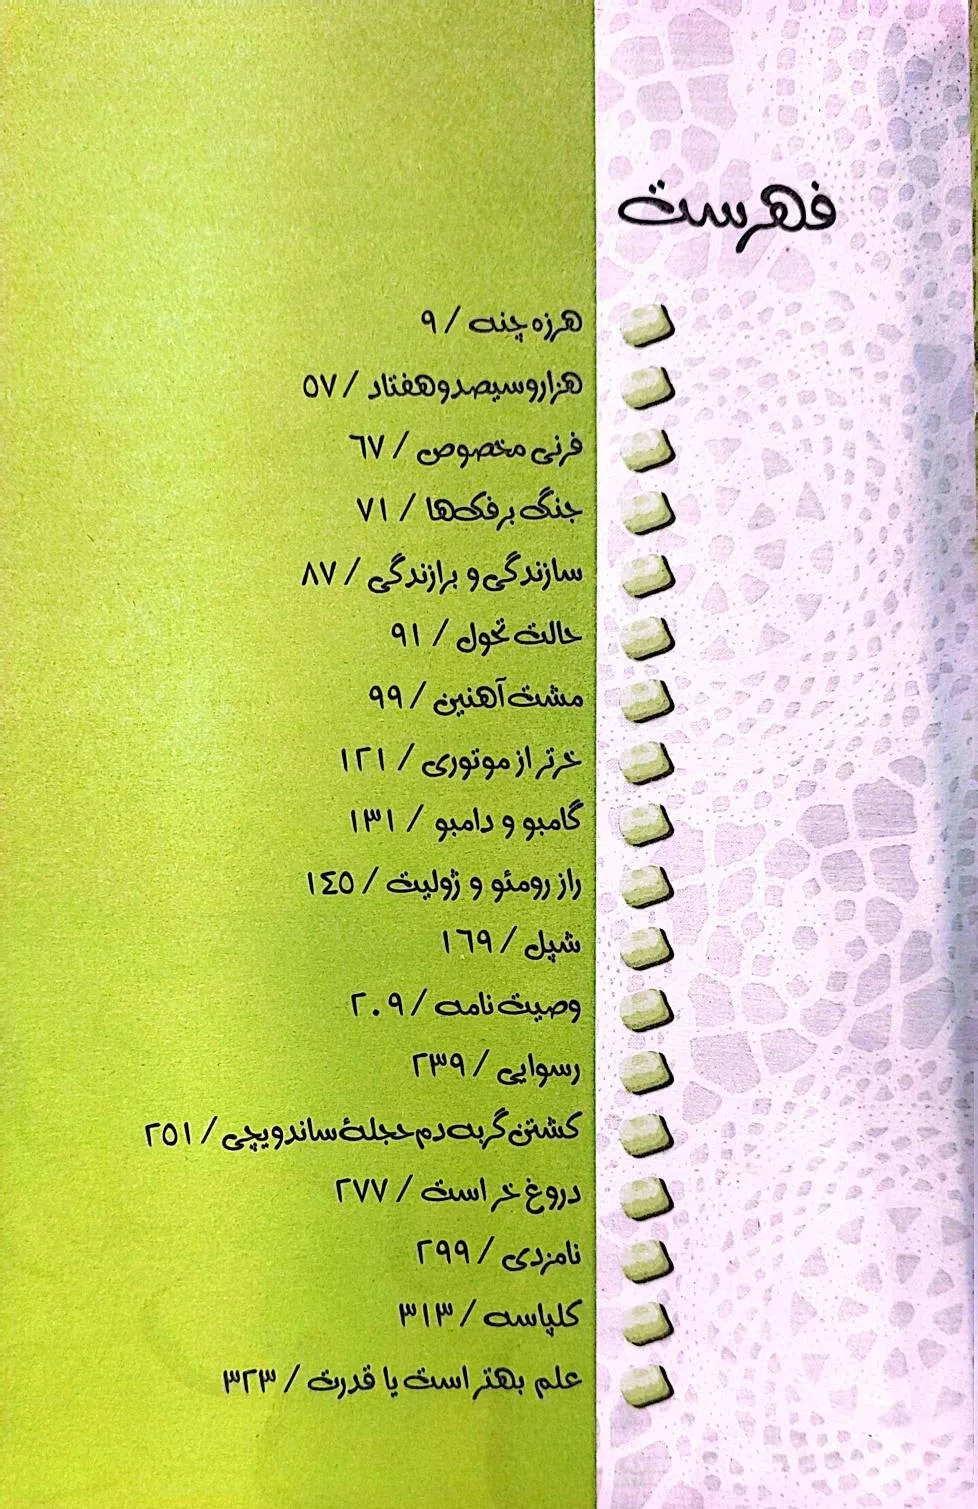 فهرست
هرزه چنه / ۹
هزار و سیصد و هفتاد / ۵۷
فرنی مخصوص / ۶۷
جنگ برفک‌ها / ۷۱
سازندگی و برازندگی / ۸۷
حالت تحول / ۹۱
مشت آهنین / ۹۹
خرتر از موتوری / ۱۲۱
گامبو و دامبو / ۱۳۱
راز رومئو و ژولیت / ۱٤۵
شپل / ۱۶۹
وصیت نامه / ۲۰۹
رسوایی / ۲۳۹
کشتن گربه دم حجلهٔ ساندویچی / ۲۵۱
دروغ خر است / ۲۷۷
نامزدی / ۲۹۹
کلپاسه / ۳۱۳
علم بهتر است یا قدرت / ۳۲۳